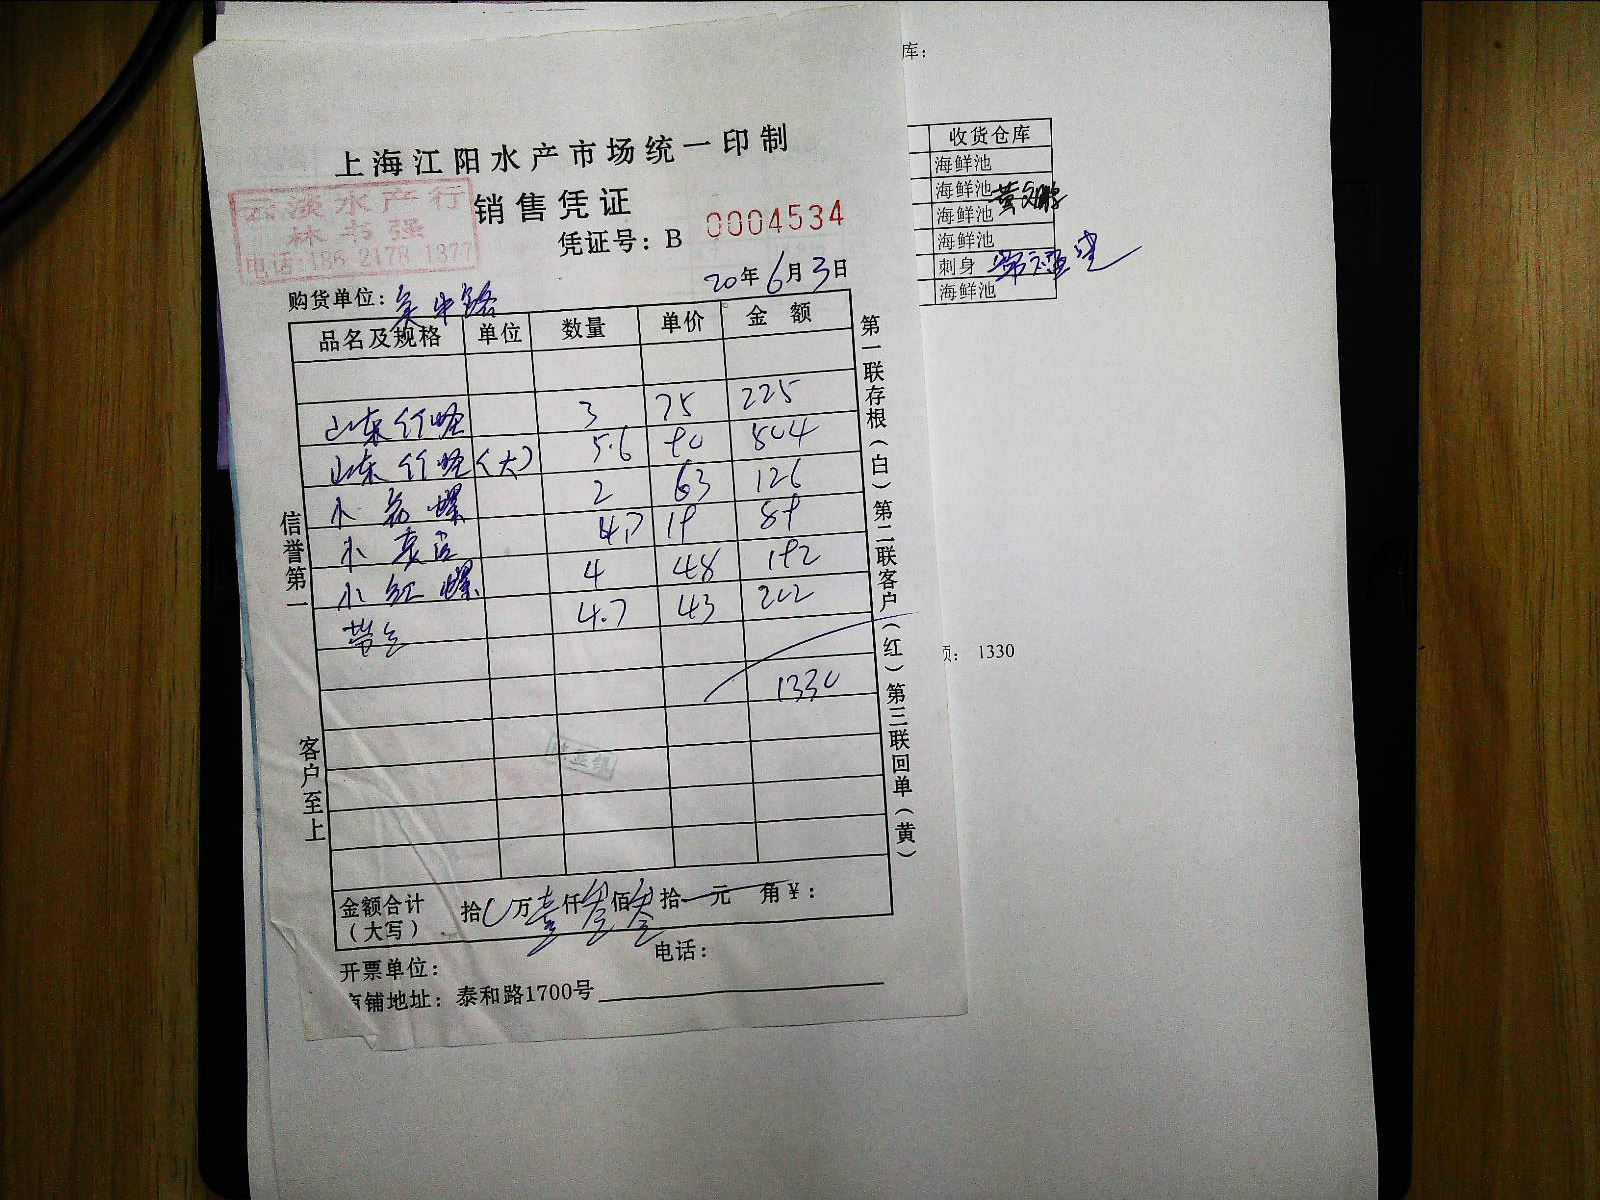 上海江阳水产市场统一印制
销售凭证
云淡水产行
林书强
电话:186 2178 1377
凭证号：B 0004534
20年6月3日
购货单位：吴中路
品名及规格 单位 数量 单价 金额
山东竹蛏 3 75 225
山东竹蛏（大） 5.6 90 504
小花螺 2 63 126
小 4.7 19 89
小红螺 4 48 192
带子 4.7 43 202
1330
金额合计（大写） 拾万壹仟叁佰叁拾元 角￥：
开票单位：
电话：
商铺地址：泰和路1700号
信誉第一
客户至上
第一联存根（白）第二联客户（红）第三联回单（黄）
库：
收货仓库
海鲜池
海鲜池
海鲜池
海鲜池
刺身
海鲜池
额：1330